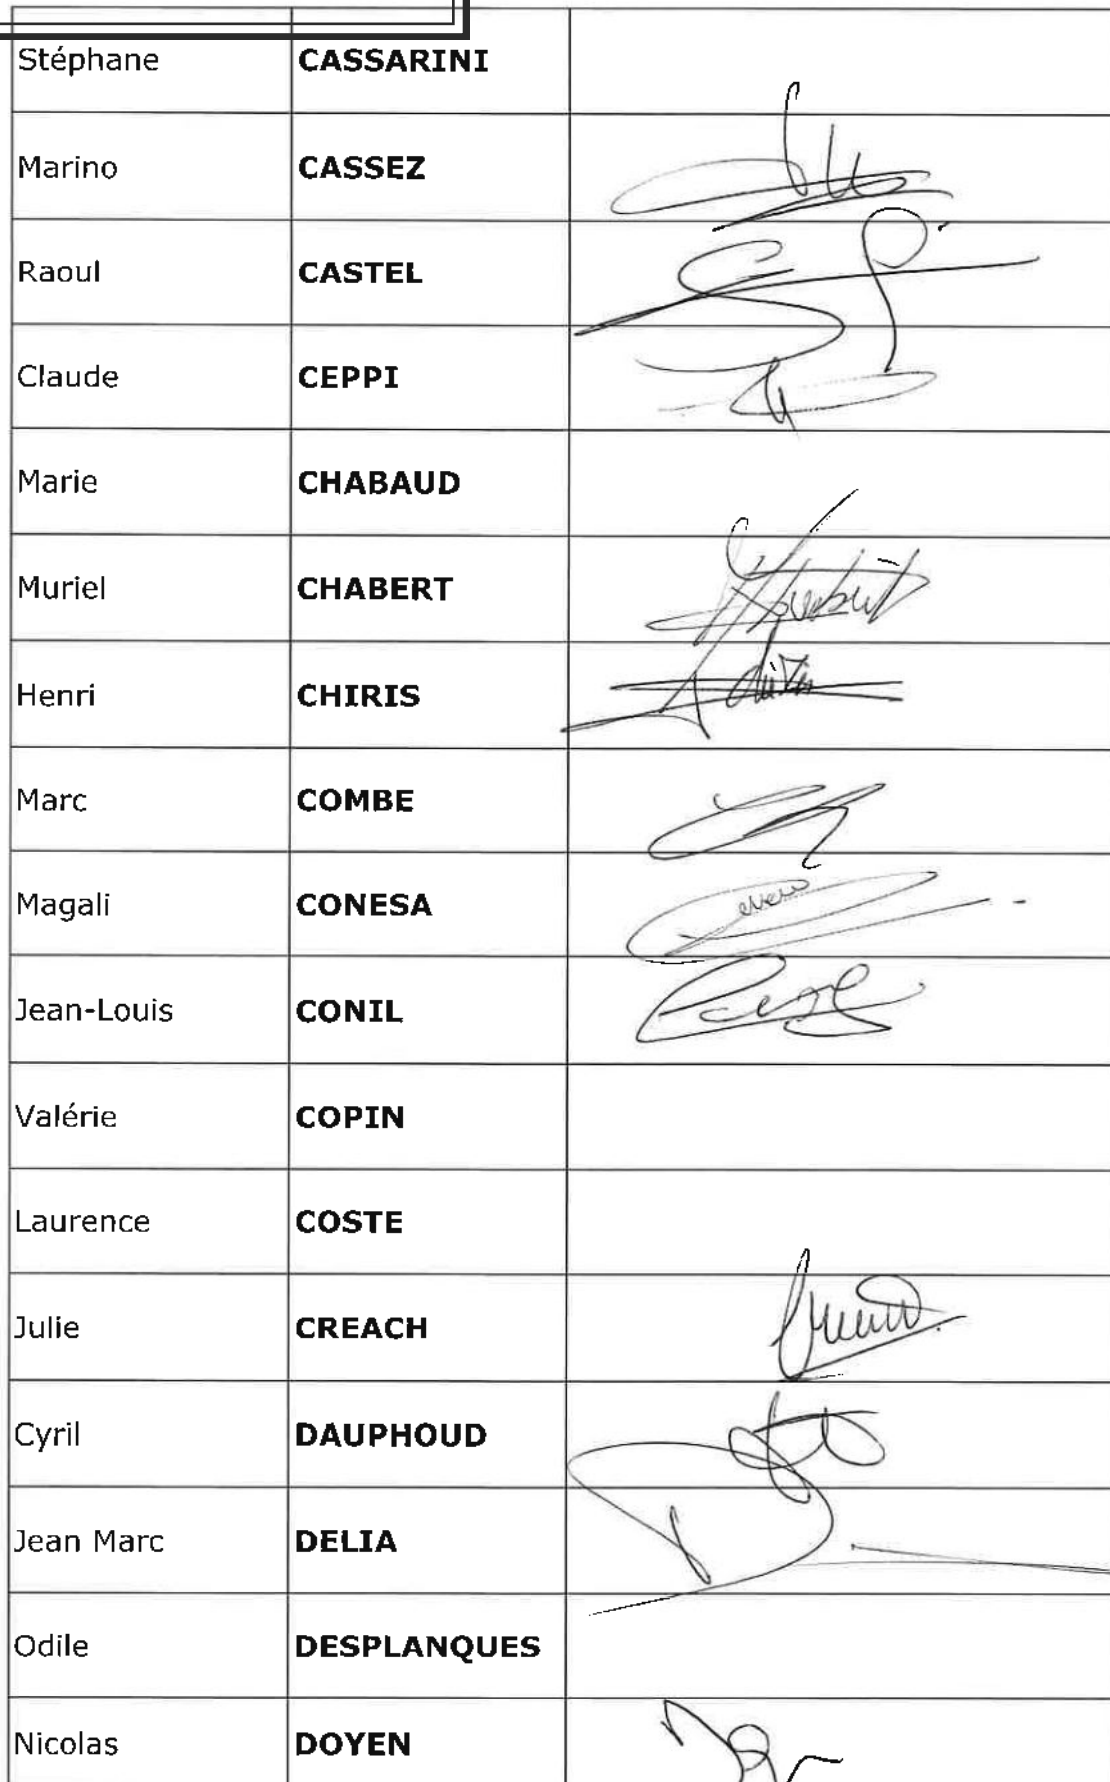 Stéphane CASSARINI
Marino CASSEZ
Raoul CASTEL
Claude CEPPI
Marie CHABAUD
Muriel CHABERT
Henri CHIRIS
Marc COMBE
Magali CONESA
Jean-Louis CONIL
Valérie COPIN
Laurence COSTE
Julie CREACH
Cyril DAUPHOUD
Jean Marc DELIA
Odile DESPLANQUES
Nicolas DOYEN